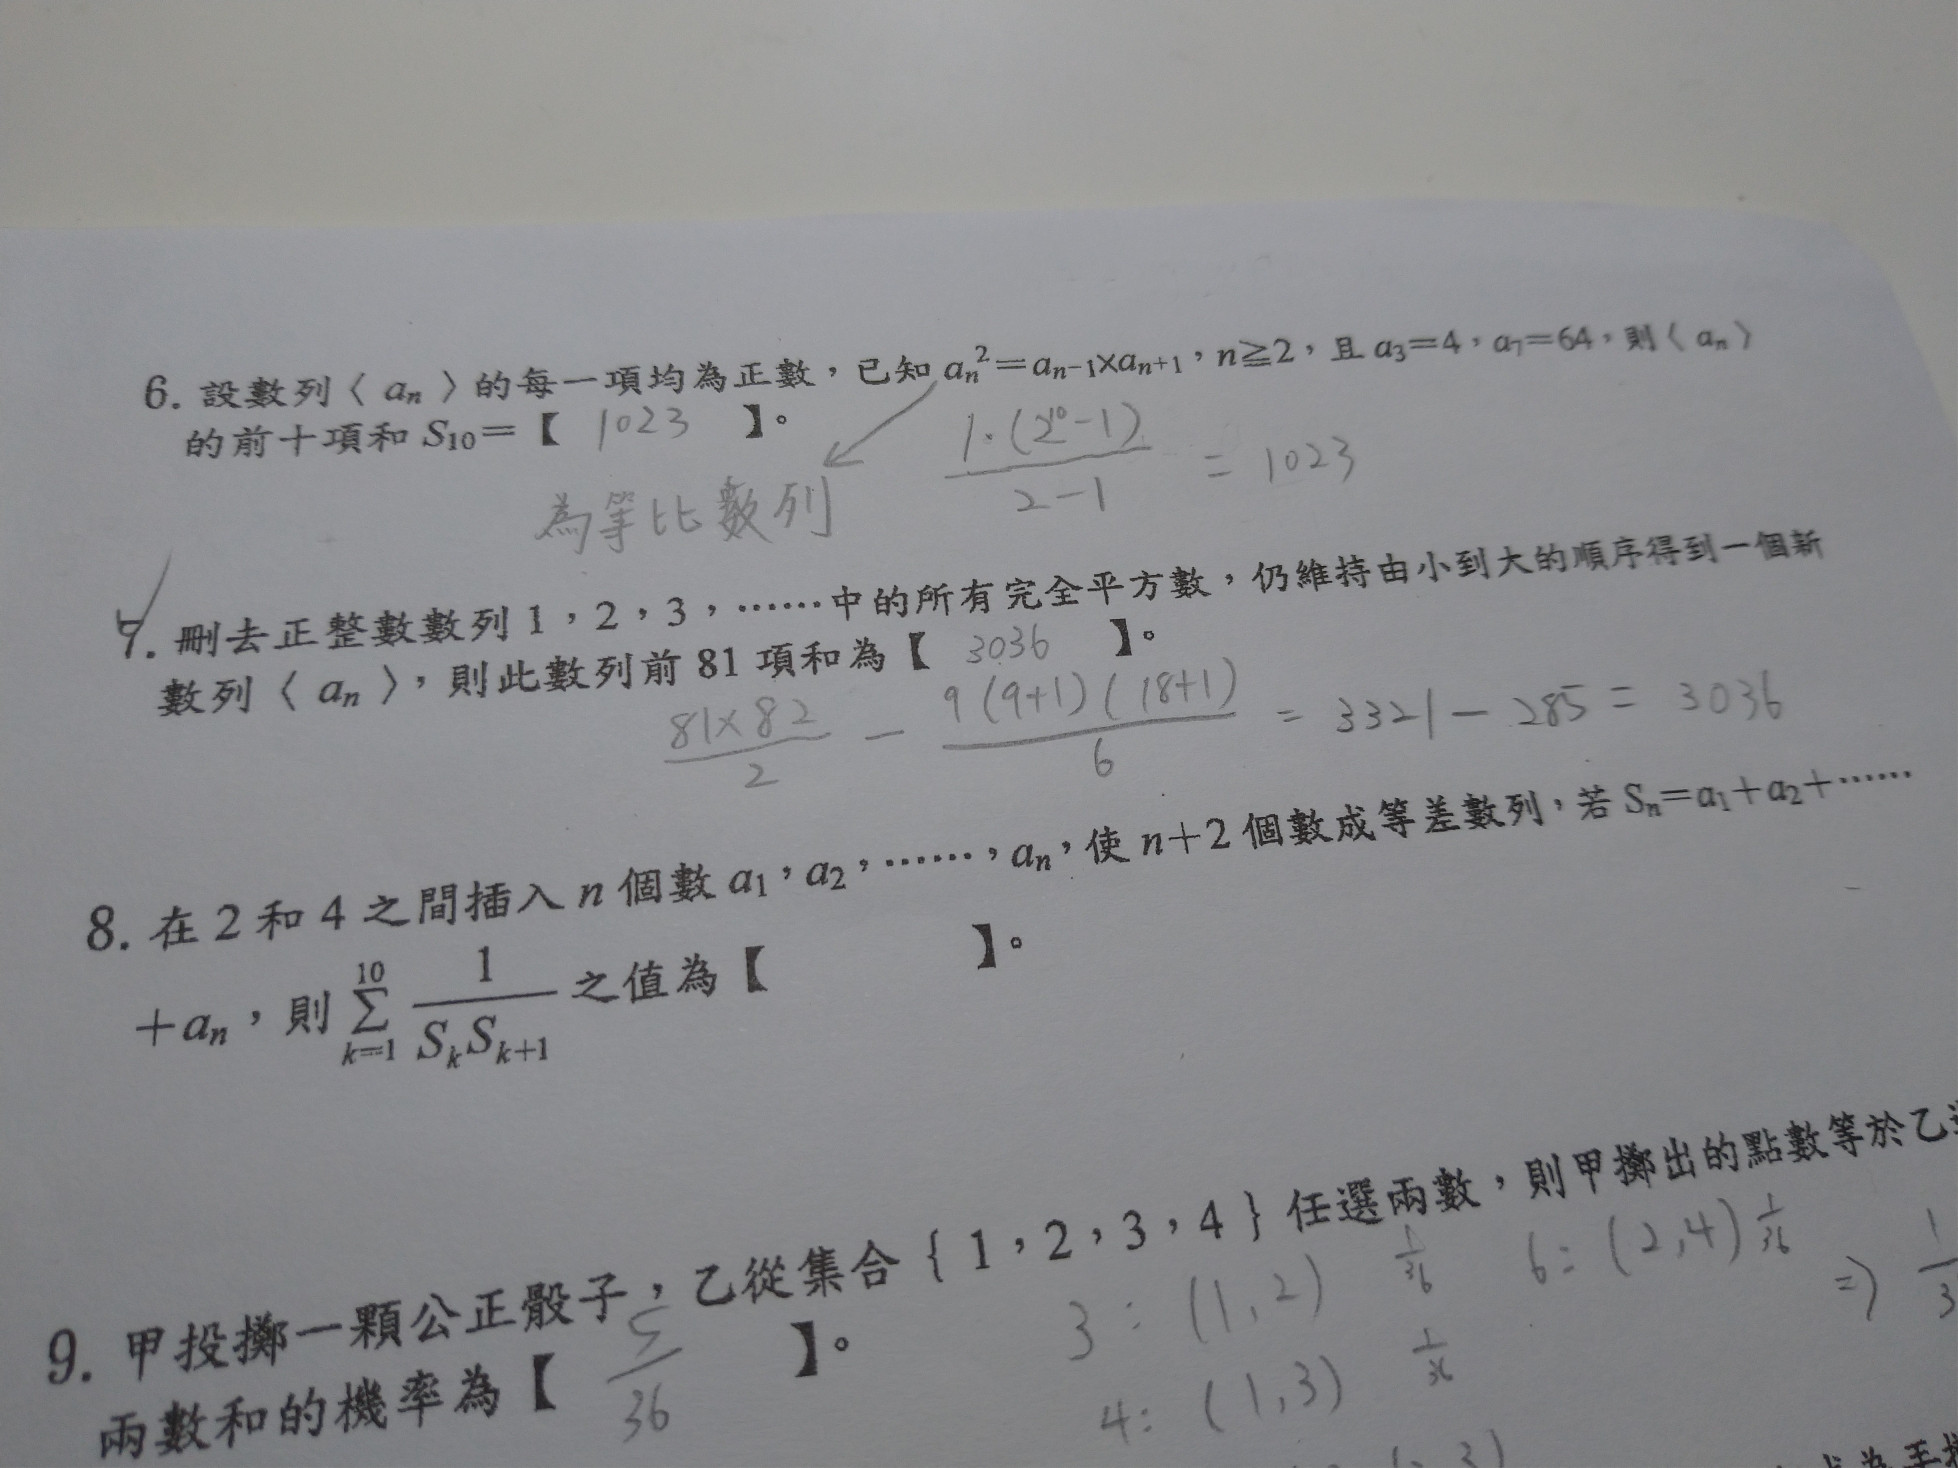 6. 設數列〈 aₙ 〉的每一項均為正數，已知 aₙ²=aₙ₋₁×aₙ₊₁，n≧2，且 a₃=4，a₇=64，則〈 aₙ 〉
的前十項和 S₁₀=【 1023 】。
1·(2¹⁰-1) / 2-1 = 1023
為等比數列
7. 刪去正整數數列 1，2，3，……中的所有完全平方數，仍維持由小到大的順序得到一個新
數列〈 aₙ 〉，則此數列前 81 項和為【 3036 】。
81×82 / 2 - 9(9+1)(18+1) / 6 = 3321 - 285 = 3036
8. 在 2 和 4 之間插入 n 個數 a₁，a₂，……，aₙ，使 n+2 個數成等差數列，若 Sₙ=a₁+a₂+……
+aₙ，則 ∑ₖ₌₁¹⁰ 1 / SₖSₖ₊₁ 之值為【 】。
9. 甲投擲一顆公正骰子，乙從集合 { 1，2，3，4 } 任選兩數，則甲擲出的點數等於乙
兩數和的機率為【 5/36 】。
3：(1,2) 1/36 6：(2,4) 1/36 ⇒
4：(1,3) 1/36